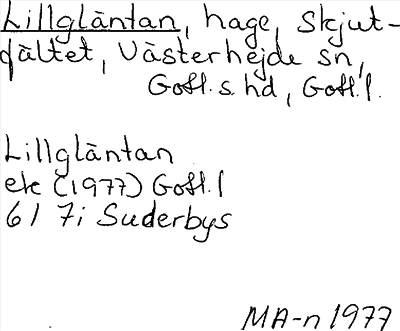 Lillgläntan, hage, Skjut-
fältet, Västerhejde sn,
Gotl. s. hd, Gotl. l.
Lillgläntan
ek (1977) Gotl. l
61 7i Suderbys
MA-n 1977